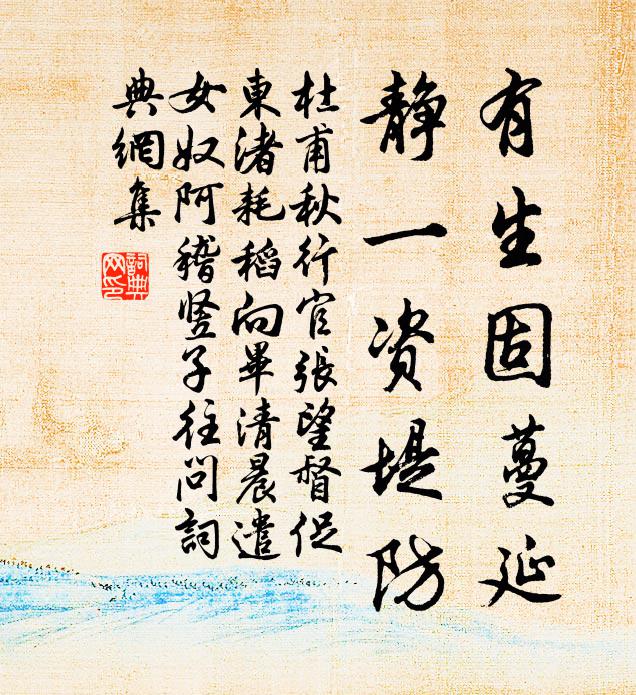 有生固蔓延
静一资堤防
杜甫秋行官張望督促
東渚耗稻向畢清晨遣
女奴阿稽竖子往問詞
典網集
詞典
网印